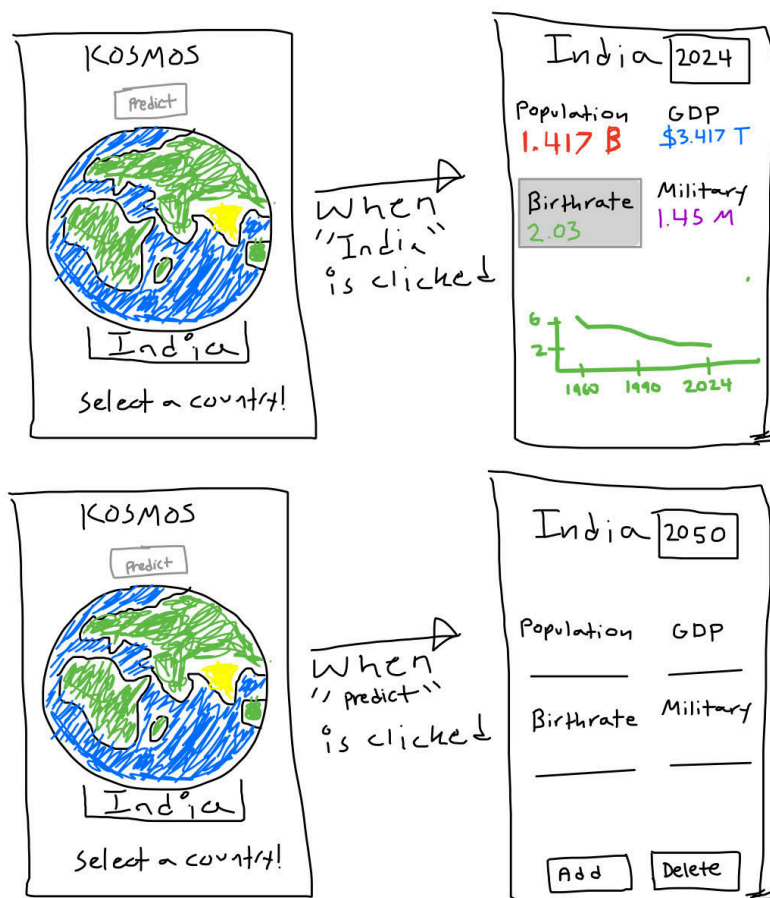 KOSMOS
Predict
India
Select a country!
When
"India"
is clicked
India 2024
Population GDP
1.417 B $3.417 T
Birthrate Military
2.03 1.45 M
6
2
1960 1990 2024
KOSMOS
Predict
India
Select a country!
When
"Predict"
is clicked
India 2050
Population GDP
Birthrate Military
Add Delete